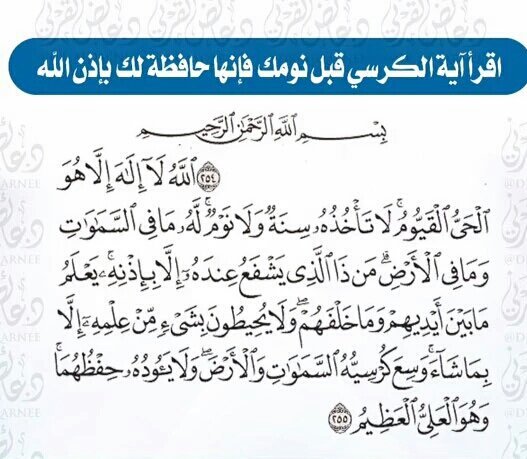 اقرأ آية الكرسي قبل نومك فإنها حافظة لك بإذن الله
بِسْمِ اللَّهِ الرَّحْمَٰنِ الرَّحِيمِ
﴿٢٥٤﴾ اللَّهُ لَا إِلَٰهَ إِلَّا هُوَ
الْحَيُّ الْقَيُّومُ ۚ لَا تَأْخُذُهُ سِنَةٌ وَلَا نَوْمٌ ۚ لَّهُ مَا فِي السَّمَاوَاتِ
وَمَا فِي الْأَرْضِ ۗ مَن ذَا الَّذِي يَشْفَعُ عِندَهُ إِلَّا بِإِذْنِهِ ۚ يَعْلَمُ
مَا بَيْنَ أَيْدِيهِمْ وَمَا خَلْفَهُمْ ۖ وَلَا يُحِيطُونَ بِشَيْءٍ مِّنْ عِلْمِهِ إِلَّا
بِمَا شَاءَ ۚ وَسِعَ كُرْسِيُّهُ السَّمَاوَاتِ وَالْأَرْضَ ۖ وَلَا يَئُودُهُ حِفْظُهُمَا ۚ
وَهُوَ الْعَلِيُّ الْعَظِيمُ ﴿٢٥٥﴾